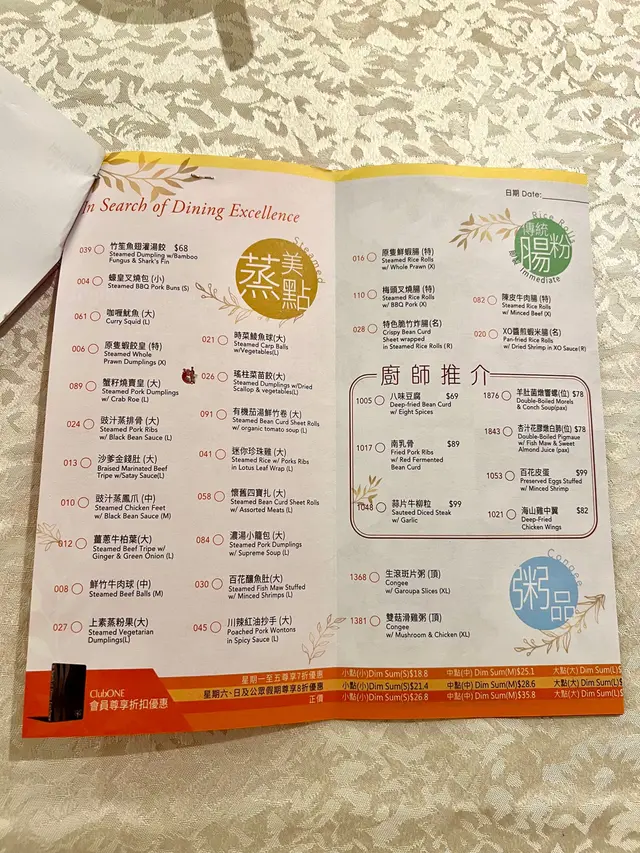 In Search of Dining Excellence
蒸美點
Steamed
039 竹笙魚翅灌湯餃 $68
Steamed Dumpling w/Bamboo
Fungus & Shark's Fin
004 蠔皇叉燒包 (小)
Steamed BBQ Pork Buns (S)
061 咖喱魷魚 (大)
Curry Squid (L)
006 原隻蝦餃皇 (特)
Steamed Whole
Prawn Dumplings (X)
089 蟹籽燒賣皇 (大)
Steamed Pork Dumplings
w/ Crab Roe (L)
024 豉汁蒸排骨 (大)
Steamed Pork Ribs
w/ Black Bean Sauce (L)
013 沙爹金錢肚 (大)
Braised Marinated Beef
Tripe w/Satay Sauce(L)
010 豉汁蒸鳳爪 (中)
Steamed Chicken Feet
w/ Black Bean Sauce (M)
012 薑蔥牛柏葉(大)
Steamed Beef Tripe w/
Ginger & Green Onion (L)
008 鮮竹牛肉球 (中)
Steamed Beef Balls (M)
027 上素蒸粉果(大)
Steamed Vegetarian
Dumplings(L)
021 時菜鯪魚球(大)
Steamed Carp Balls
w/Vegetables(L)
026 瑤柱菜苗餃(大)
Steamed Dumplings w/Dried
Scallop & vegetables(L)
091 有機茄湯鮮竹卷 (大)
Steamed Bean Curd Sheet Rolls
w/ organic tomato soup (L)
041 迷你珍珠雞 (大)
Steamed Rice w/ Porks Ribs
in Lotus Leaf Wrap (L)
058 懷舊四寶扎 (大)
Steamed Bean Curd Sheet Rolls
w/ Assorted Meats (L)
084 濃湯小籠包 (大)
Steamed Pork Dumplings
w/ Supreme Soup (L)
030 百花釀魚肚(大)
Steamed Fish Maw Stuffed
w/ Minced Shrimps (L)
045 川辣紅油抄手 (大)
Poached Pork Wontons
in Spicy Sauce (L)
ClubONE
會員尊享折扣優惠
星期一至五尊享7折優惠
星期六、日及公眾假期尊享8折優惠
正價
日期 Date:
Rice Rolls
傳統
腸粉
Immediate
016 原隻鮮蝦腸 (特)
Steamed Rice Rolls
w/ Whole Prawn (X)
110 梅頭叉燒腸 (特)
Steamed Rice Rolls
w/ BBQ Pork (X)
082 陳皮牛肉腸 (特)
Steamed Rice Rolls
w/ Minced Beef (X)
028 特色脆竹炸腸(名)
Crispy Bean Curd
Sheet wrapped
in Steamed Rice Rolls (R)
020 XO醬煎蝦米腸(名)
Pan-fried Rice Rolls
w/ Dried Shrimp in XO Sauce(R)
廚師推介
1005 八味豆腐 $69
Deep-fried Bean Curd
w/ Eight Spices
1876 羊肚菌燉響螺(位) $78
Double-Boiled Morels
& Conch Soup(pax)
1017 南乳骨 $89
Fried Pork Ribs
w/ Red Fermented
Bean Curd
1843 杏汁花膠燉白肺(位) $78
Double-Boiled Pigmaue
w/ Fish Maw & Sweet
Almond Juice (pax)
1053 百花皮蛋 $99
Preserved Eggs Stuffed
w/ Minced Shrimp
1048 蒜片牛柳粒 $99
Sauteed Diced Steak
w/ Garlic
1021 海山雞中翼 $82
Deep-Fried
Chicken Wings
Congee
粥品
1368 生滾斑片粥 (頂)
Congee
w/ Garoupa Slices (XL)
1381 雙菇滑雞粥 (頂)
Congee
w/ Mushroom & Chicken (XL)
小點(小)Dim Sum(S)$18.8 中點(中) Dim Sum(M)$25.1 大點(大) Dim Sum(L)$
小點(小)Dim Sum(S)$21.4 中點(中) Dim Sum(M)$28.6 大點(大) Dim Sum(L)$
小點(小)Dim Sum(S)$26.8 中點(中) Dim Sum(M)$35.8 大點(大) Dim Sum(L)$